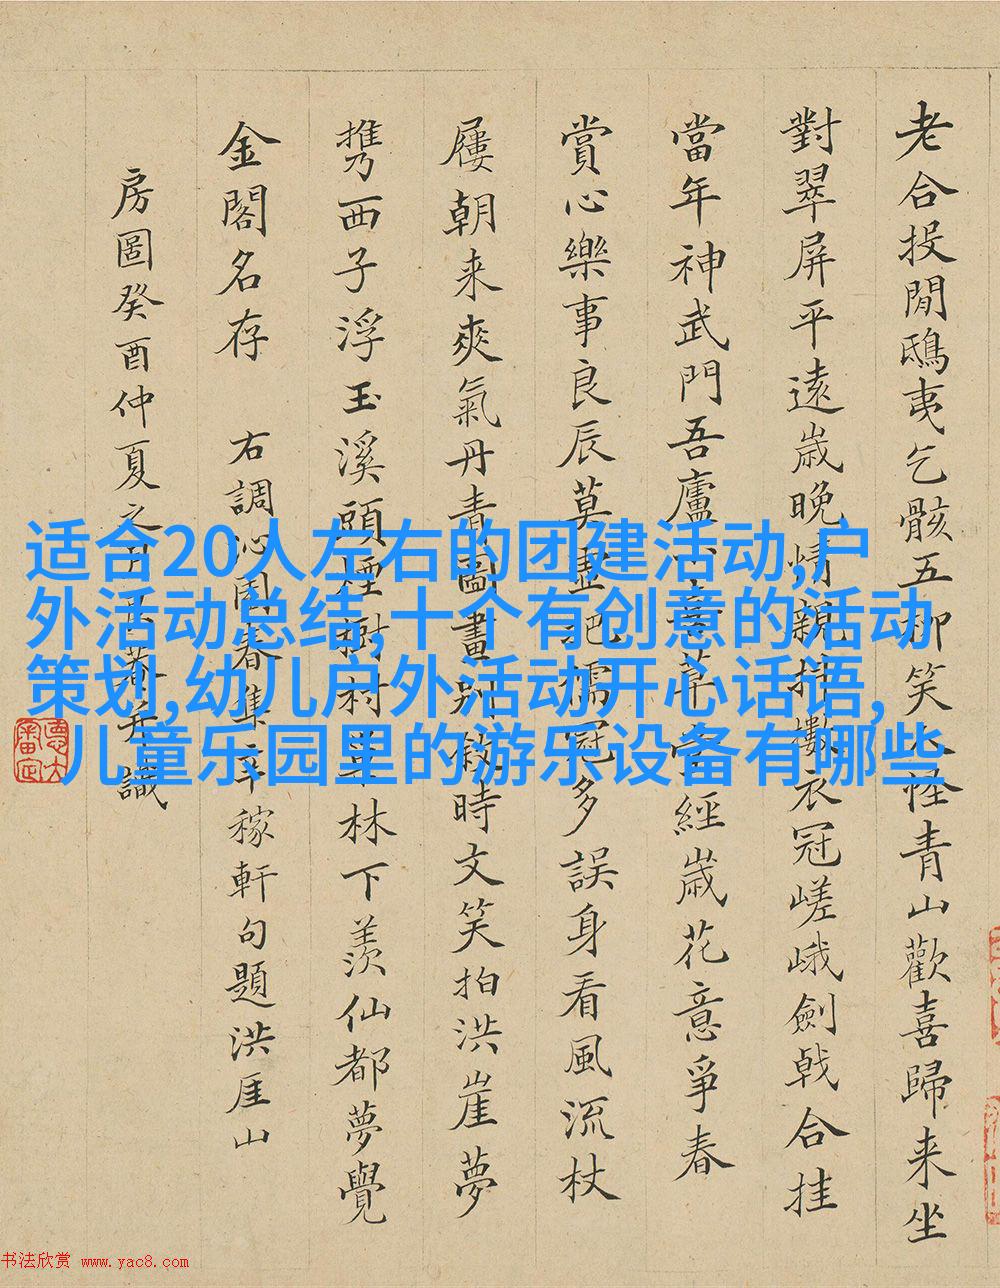 老合投閒鴟夷乞骸五柳笑人怪青山歡喜歸来坐
對翠屏平遠歲晚情親衣冠嵯峨劍戟合挂
當年神武門吾廬喜草堂經歲花意爭春
賞心樂事良辰莫盡把儒冠多誤身看風流杖
屨朝来爽氣丹青圖畫別敘時文笑拍洪崖夢
携西子浮玉溪頭煙樹村林下羨仙都夢覺
金閣名存 右調沁園春集辛稼軒句題洪厓山
房圖癸酉仲夏之月并識
适合20人左右的团建活动,户
外活动总结,十个有创意的活动
策划,幼儿户外活动开心话语,
儿童乐园里的游乐设备有哪些
书法欣赏 www.yac8.com